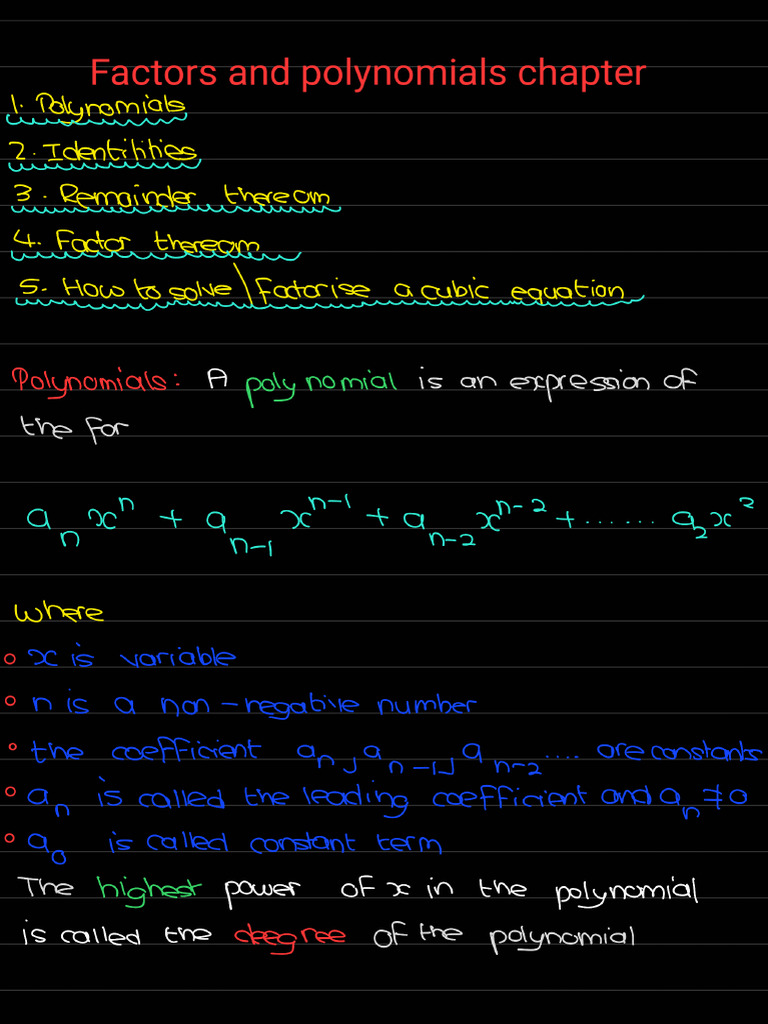 Factors and polynomials chapter
1. Polynomials
2. Identilities
3. Remainder thereom
4. Factor thereom
5. How to solve \ factorise a cubic equation
Polynomials: A polynomial is an expression of
the for
aₙxⁿ + aₙ₋₁xⁿ⁻¹ + aₙ₋₂xⁿ⁻² + ...... a₂x²
where
○ x is variable
○ n is a non-negative number
○ the coefficient aₙ, aₙ₋₁, aₙ₋₂ .... are constants
○ aₙ is called the leading coefficient and aₙ ≠ 0
○ a₀ is called constant term
The highest power of x in the polynomial
is called the deegree of the polynomial